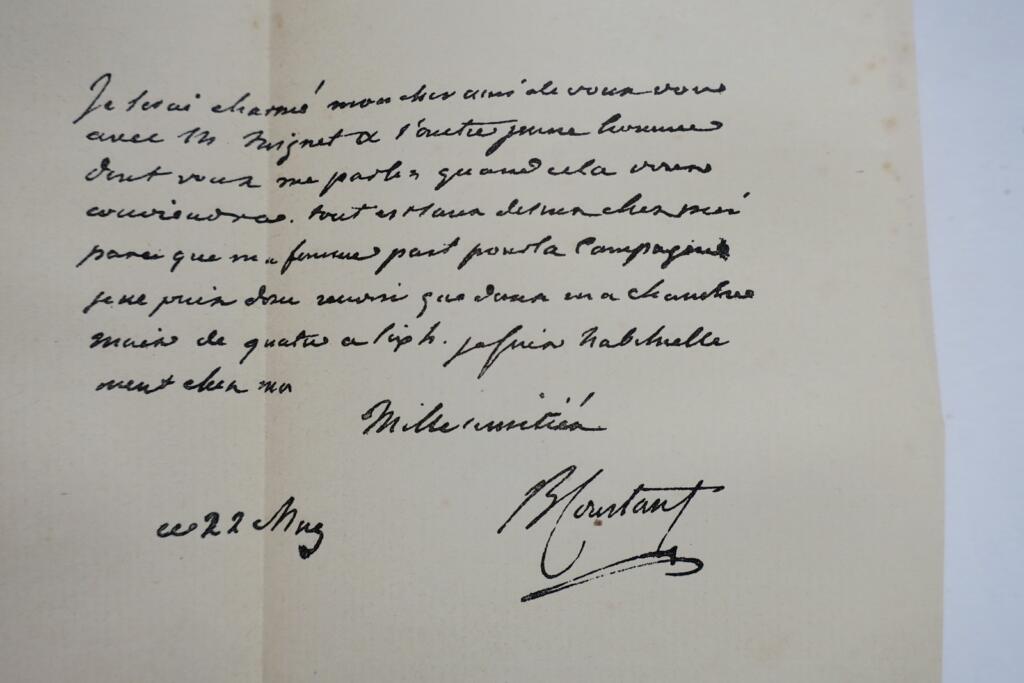 Je serai charmé mon cher ami de vous voir
avec Mr Mignet & l'autre jeune homme
dont vous me parlez quand cela vous
conviendra. tout est sans dessus chez moi
parce que ma femme part pour la Campagne
je ne puis donc recevoir que dans ma chambre
mais de quatre a six h. je suis habituelle
ment chez moi
Mille amitiés
ce 22 May
B Constant